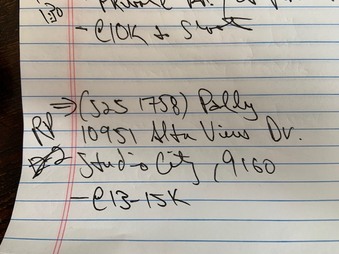 1:30
- @10K to Start
⇒ (525 1758) Polly
10951 Alta View Dr.
Studio City, 9160
- @13-15K